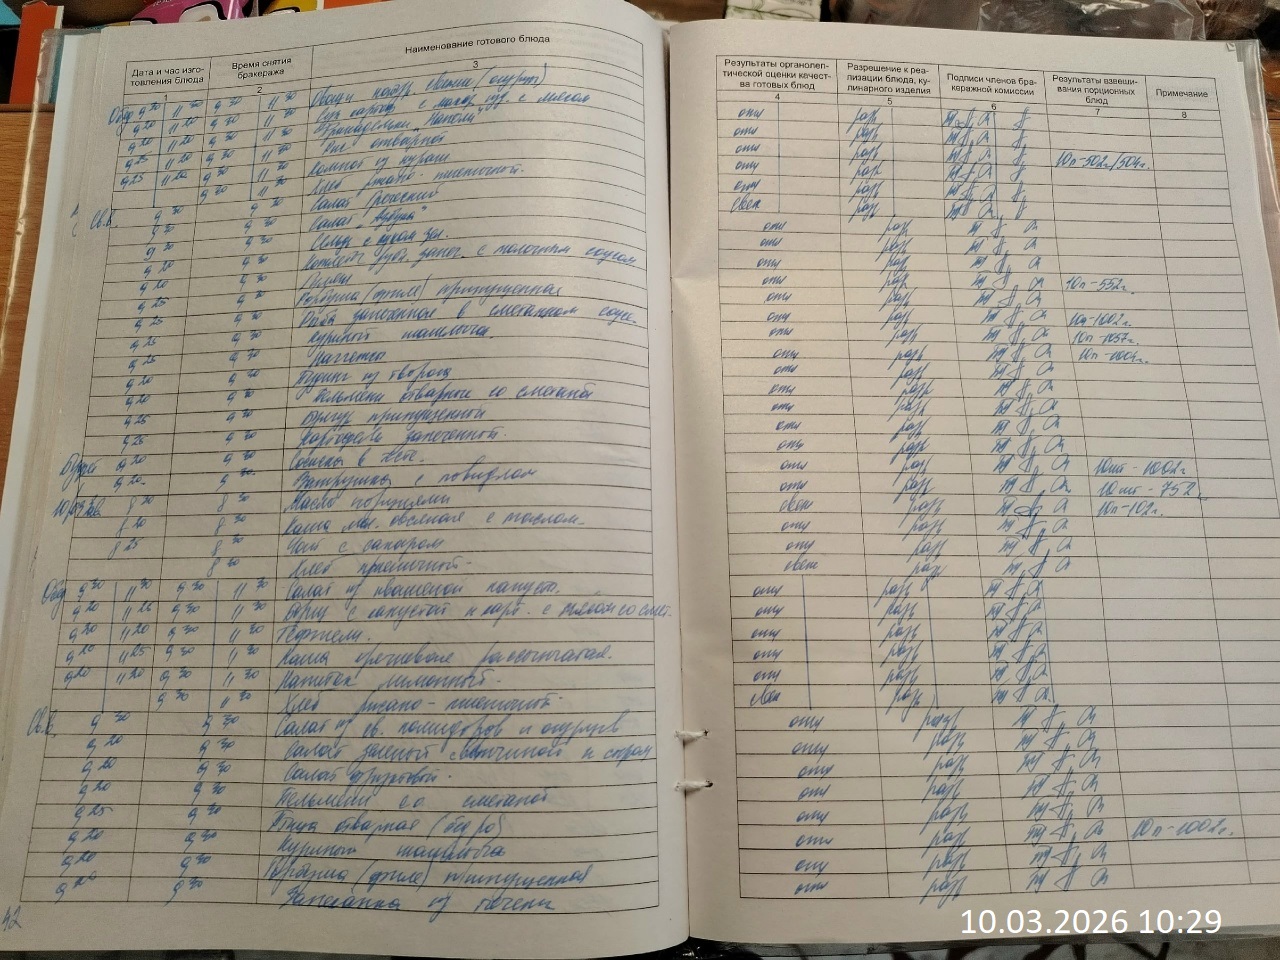 Дата и час изго-
товления блюда
Время снятия
бракеража
Наименование готового блюда
1
2
3
Обед 9 20 11 20 9 30 11 30 Овощи свежие (огурцы)
9 20 11 20 9 30 11 30 Суп карт с мак. изд. с мясом
9 20 11 20 9 30 11 30 Фрикадельки "Наполи"
9 25 11 20 9 30 11 30 Рис отварной
9 25 11 20 9 30 11 30 Компот из кураги
9 30 11 30 Хлеб ржано-пшеничный.
Св.в. 9 20 9 30 Салат Греческий
9 20 9 30 Салат "Азбука"
9 20 9 30 Сельдь с луком зел.
9 20 9 30 Котлета запеч. с молочным соусом
9 20 9 30
9 25 9 30 Горбуша (филе) припущенная
9 25 9 30 Рыба запеченная в сметанном соусе.
9 25 9 30 Куриный шашлычок.
9 25 9 30 Наггетсы
9 20 9 30 Пудинг из творога
9 20 9 30 Пельмени отварные со сметаной
9 25 9 30 припущенный
9 25 9 30 Картофель запеченный.
Буфет 9 20 9 30 Сосиска в тесте.
9 20 9 30 Ватрушка с повидлом
8 20 8 30 Масло порциями
8 20 8 30 Каша мол. овсяная с маслом.
8 25 8 30 Чай с сахаром
8 30 Хлеб пшеничный.
Обед 9 20 11 20 9 30 11 30 Салат из квашеной капусты.
9 20 11 25 9 30 11 30 Борщ с капустой и карт. с мясом со смет.
9 20 11 20 9 30 11 30 Тефтели.
9 20 11 25 9 30 11 30 Каша гречневая рассыпчатая.
9 20 11 20 9 30 11 30 Напиток лимонный.
9 30 11 30 Хлеб ржано-пшеничный.
Св.в. 9 20 9 30 Салат из св. помидоров и огурцов
9 20 9 30 Салат зеленый с ветчиной и сыром
9 20 9 30 Салат фруктовый.
9 20 9 30 Пельмени со сметаной
9 25 9 30 Птица отварная (бедро)
9 20 9 30 Куриный шашлычок
9 20 9 30 Горбуша (филе) припущенная
9 20 9 30 Запеканка из печени
42
Результаты органолеп-
тической оценки качест-
ва готовых блюд
Разрешение к реа-
лизации блюда, ку-
линарного изделия
Подписи членов бра-
керажной комиссии
Результаты взвеши-
вания порционных
блюд
Примечание
4
5
6
7
8
отл разр
отл разр
отл разр
отл разр 10п-502г/504г.
отл разр
свеж разр
отл разр
отл разр
отл разр
отл разр 10п-552г.
отл разр
отл разр 10п-1002г.
отл разр 10п-1057г.
отл разр 10п-1004г.
отл разр
отл разр
отл разр
отл разр
отл разр
отл разр 10шт-1002г.
отл разр 10шт-752г.
свеж разр 10п-102г.
отл разр
отл разр
свеж разр
отл разр
отл разр
отл разр
отл разр
отл разр
свеж разр
отл разр
отл разр
отл разр
отл разр
отл разр
отл разр 10п-1002г.
отл разр
отл разр
10.03.2026 10:29